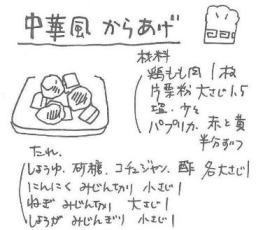 中華風 からあげ
材料
鶏もも肉 1枚
片栗粉 大さじ1.5
塩 少々
パプリカ 赤と黄
半分ずつ
たれ.
しょうゆ、砂糖、コチュジャン、酢 各大さじ1
にんにく みじんぎり 小さじ1
ねぎ みじんぎり 大さじ1
しょうが みじんぎり 小さじ1